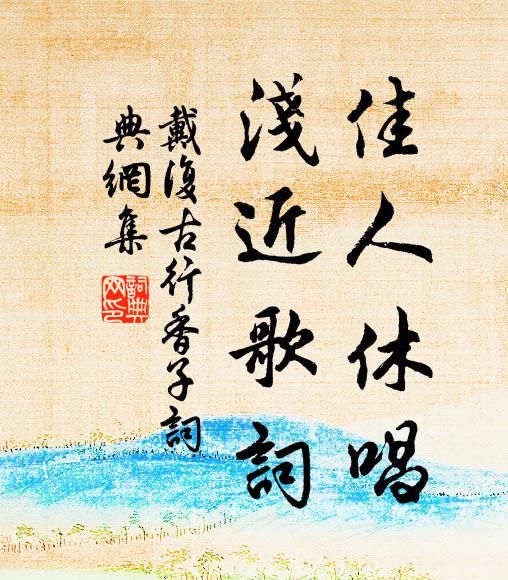 佳人休唱
淺近歌詞
戴復古行香子詞
典網集
詞典
网印